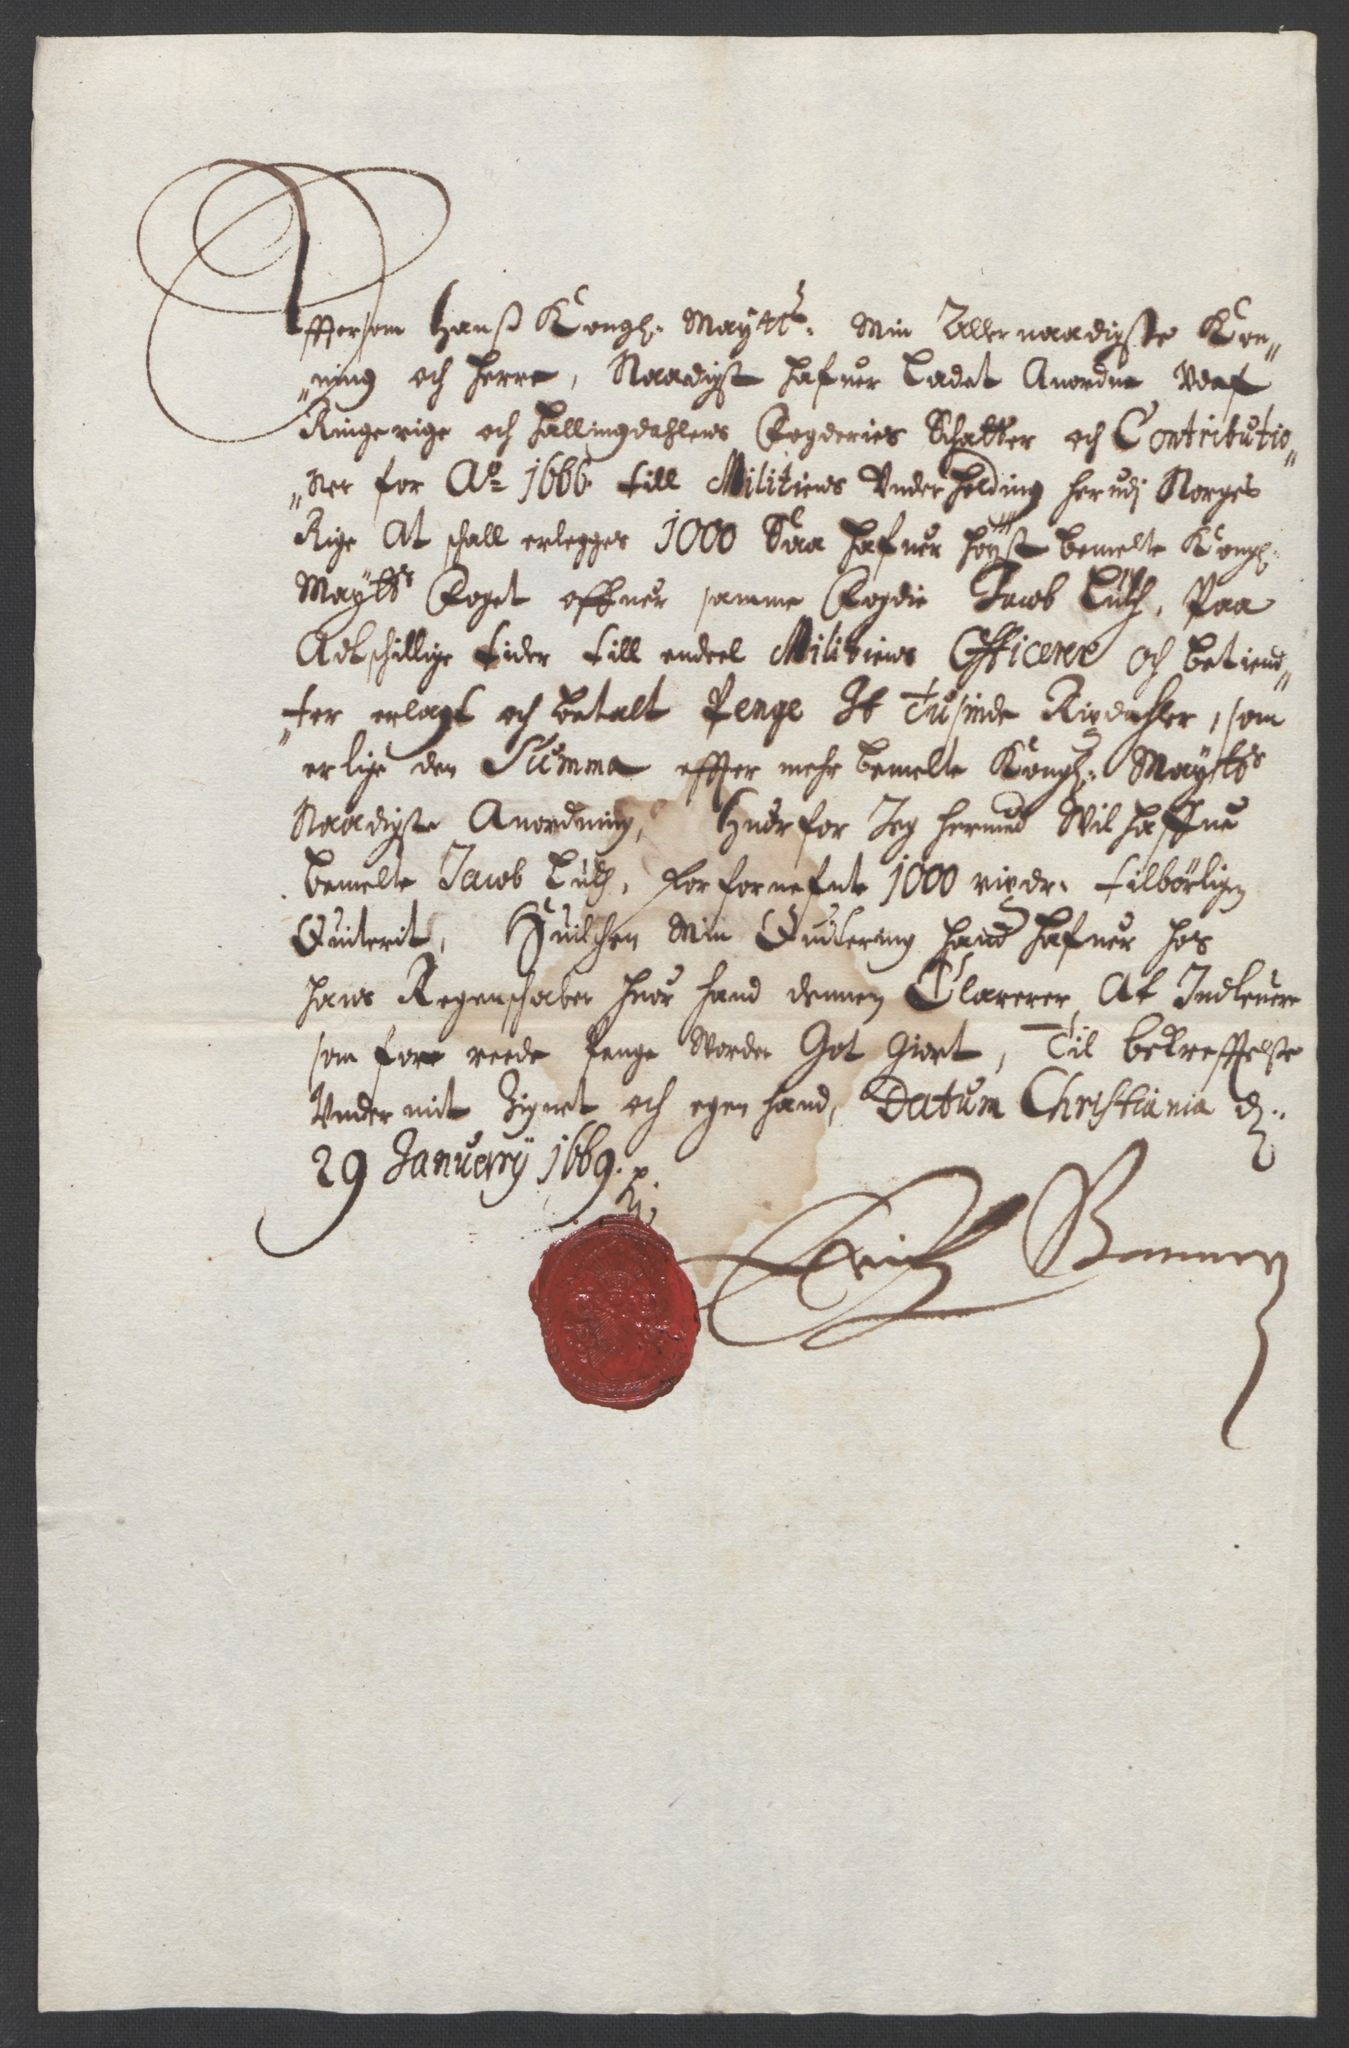 Effterßom Hanß Kongl: Maytt: Min Aller naadigste Kon„
„ning och Herre, Naadigst hafuer Ladet Anordne Vdaf
Ringerige och Hallingdahlens Fogderies Schatter och Contributio„
„ner for Ao 1666 till Militiens Vnderholding herudj Norges
Rige At schall erlegges 1000 Saa hafuer høyst bemelte Kongl:
Maytts Foget offuer samme Fogdie Jacob Luth, Paa
Adtschillige tider till endeel Militiens Officerer och betiend„
„ter erlagt och betalt Penge It Tusinde Rixdahler, som
er lige den Summa effter mehr bemelte Kongl: Maytts
Naadigste Anordning, Huorfor Jeg hermed Wil haffue
bemelte Jacob Luth, for fornefnte 1000 rixdr. tilbörligen
Quiterit, Huilchen Min Quitering hand hafuer hos
hans Regenschaber huor hand dennem Clarerer, At Indleuere
som for reede Penge Worder Got Giort, Til bekrefftelse
Vnder mit Zignet och egen haand, Datum Christiania d.
29 January 1669.
Erich Banner